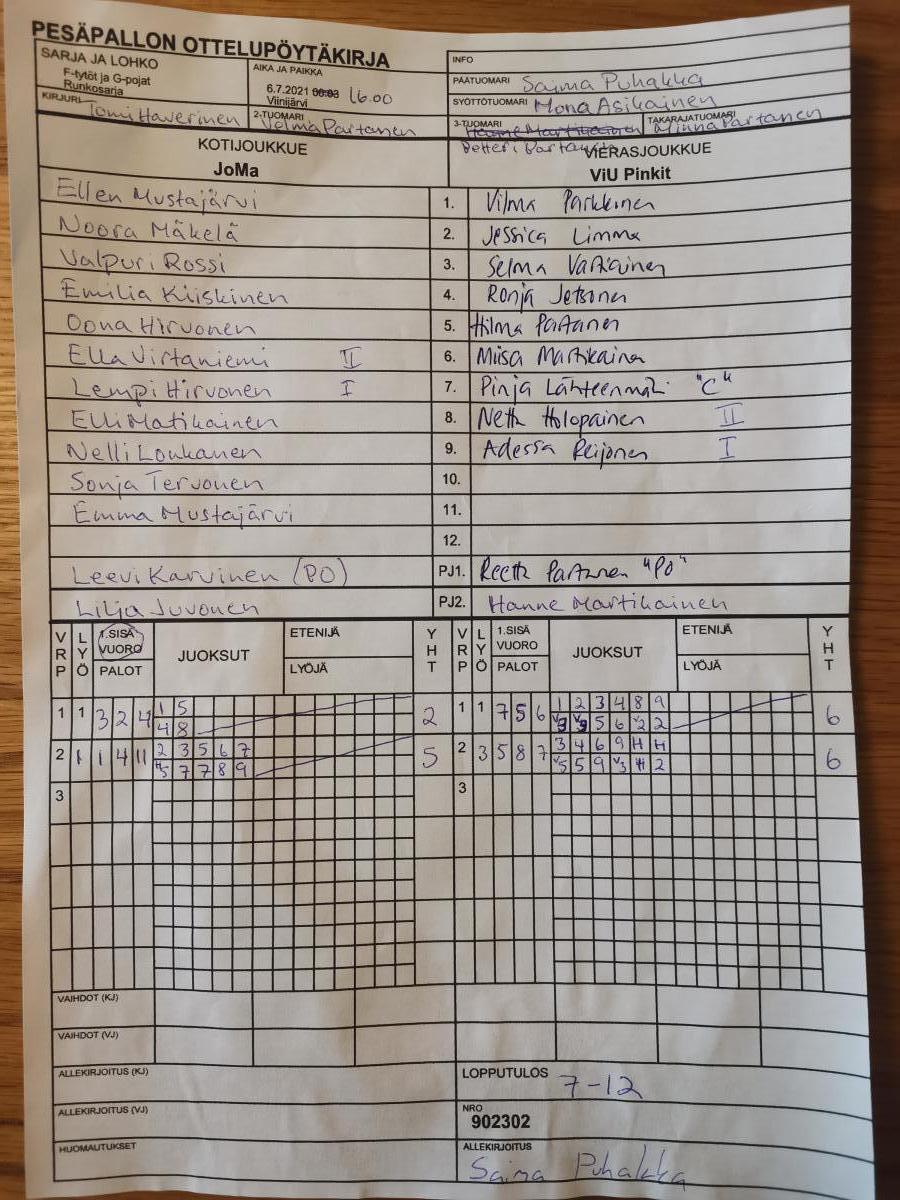 PESÄPALLON OTTELUPÖYTÄKIRJA
SARJA JA LOHKO
F-tytöt ja G-pojat
Runkosarja
AIKA JA PAIKKA
6.7.2021 00.03 16.00
Viinijärvi
INFO
PÄÄTUOMARI Saima Puhakka
SYÖTTÖTUOMARI Mona Asikainen
KIRJURI Tomi Haverinen
2-TUOMARI Velma Partanen
3-TUOMARI Hanne Martikainen
Petteri Partanen
TAKARAJATUOMARI Minna Partanen
KOTIJOUKKUE
JoMa
VIERASJOUKKUE
ViU Pinkit
Ellen Mustajärvi 1. Vilma Parkkinen
Noora Mäkelä 2. Jessica Limma
Valpuri Rossi 3. Selma Vartiainen
Emilia Kiiskinen 4. Ronja Jetsonen
Oona Hirvonen 5. Hilma Partanen
Ella Virtaniemi II 6. Miisa Martikainen
Lempi Hirvonen I 7. Pinja Lähteenmäki "C"
Elli Matikainen 8. Netta Holopainen II
Nelli Loukanen 9. Adessa Reijonen I
Sonja Tervonen 10.
Emma Mustajärvi 11.
12.
Leevi Karvinen (PO) PJ1. Reetta Partanen "PO"
Lilja Juvonen PJ2. Hanne Martikainen
VRP LYÖ 1.SISÄVUORO PALOT JUOKSUT ETENIJÄ LYÖJÄ YHT VRP LYÖ 1.SISÄ VUORO PALOT JUOKSUT ETENIJÄ LYÖJÄ YHT
1 1 3 2 4 1 5 2 1 1 7 5 6 1 2 3 4 8 9 6
4 8 5 6 2 2
2 1 1 4 11 2 3 5 6 7 5 2 3 5 8 7 3 4 6 9 H H 6
7 7 8 9 V5 5 9 V3 H 2
3 3
VAIHDOT (KJ)
VAIHDOT (VJ)
ALLEKIRJOITUS (KJ)
LOPPUTULOS 7-12
ALLEKIRJOITUS (VJ)
NRO
902302
HUOMAUTUKSET
ALLEKIRJOITUS
Saima Puhakka